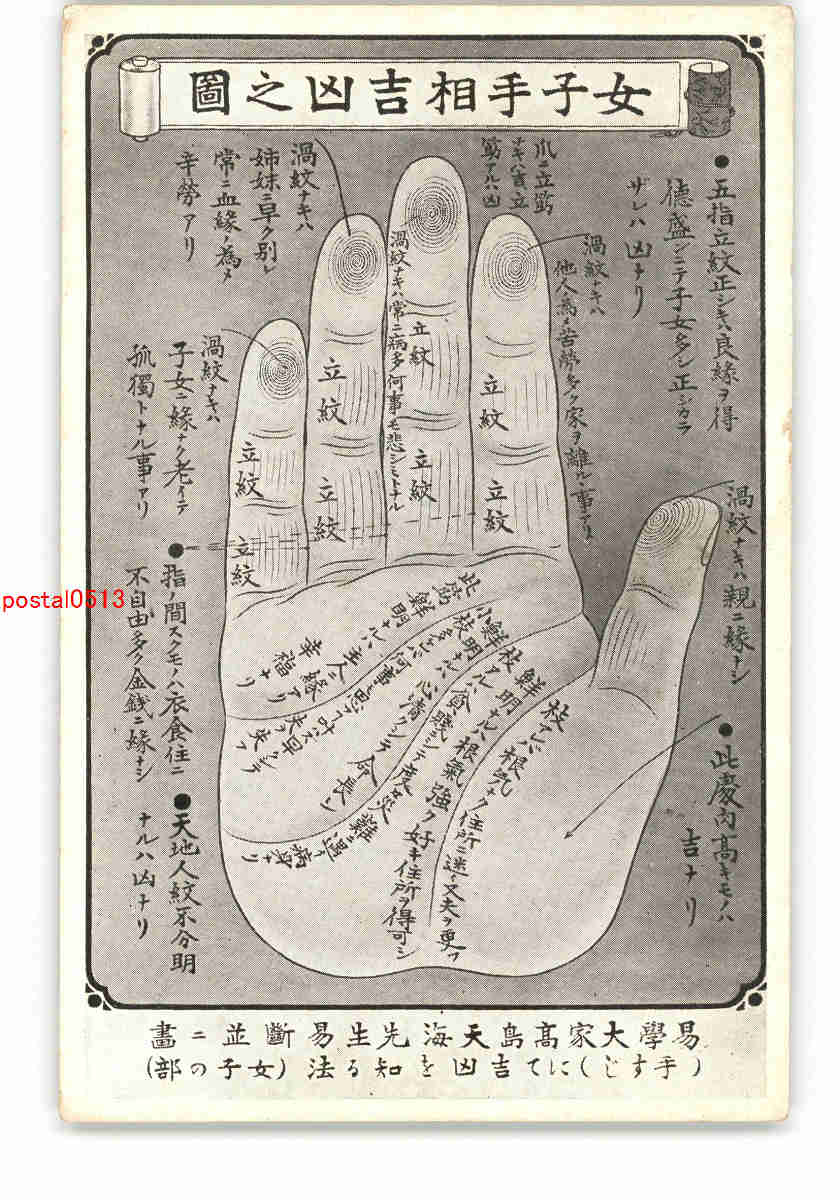 女子手相吉凶之圖
● 五指立紋正シキハ良緣ヲ得
德盛ンニテ子女多シ正シカラ
ザレハ凶ナリ
爪ニ立筋
ナキハ吉立
筋アルハ凶
渦紋ナキハ
他人ノ為メ苦勞多ク家ヲ離ルヽ事アリ
渦紋ナキハ常ニ病多何事モ悲シミトナル
渦紋ナキハ
姉妹ニ早ク別レ
常ニ血緣ノ為メ
辛勞アリ
渦紋ナキハ
子女ニ緣ナク老イテ
孤獨トナル事アリ
渦紋ナキハ親ニ緣ナシ
立紋
立紋
立紋
立紋
立紋
立紋
立紋
立紋
● 此慶肉高キモノハ
吉ナリ
● 指ノ間スクモノハ衣食住ニ
不自由多ク金銭ニ緣ナシ
● 天地人紋不分明
ナルハ凶ナリ
此筋鮮
明ナルハ
主人ニ緣アリ
幸福ナリ
小枝多キハ何事モ思フテ叶ハズ早
クシテ夫ヲ失フ
鮮明ナルハ心清クシテ命長シ
枝アルハ貧賤シテ度々災
難ニ遇イ
病身ナリ
鮮明ナルハ根氣強ク好キ住所ヲ得可シ
枝アレバ根気ナク住所ニ迷イ又夫ヲ更フ
易學大家高島天海先生易斷並ニ畫
(手すじ)にて吉凶を知る法(女子の部)
postal0513